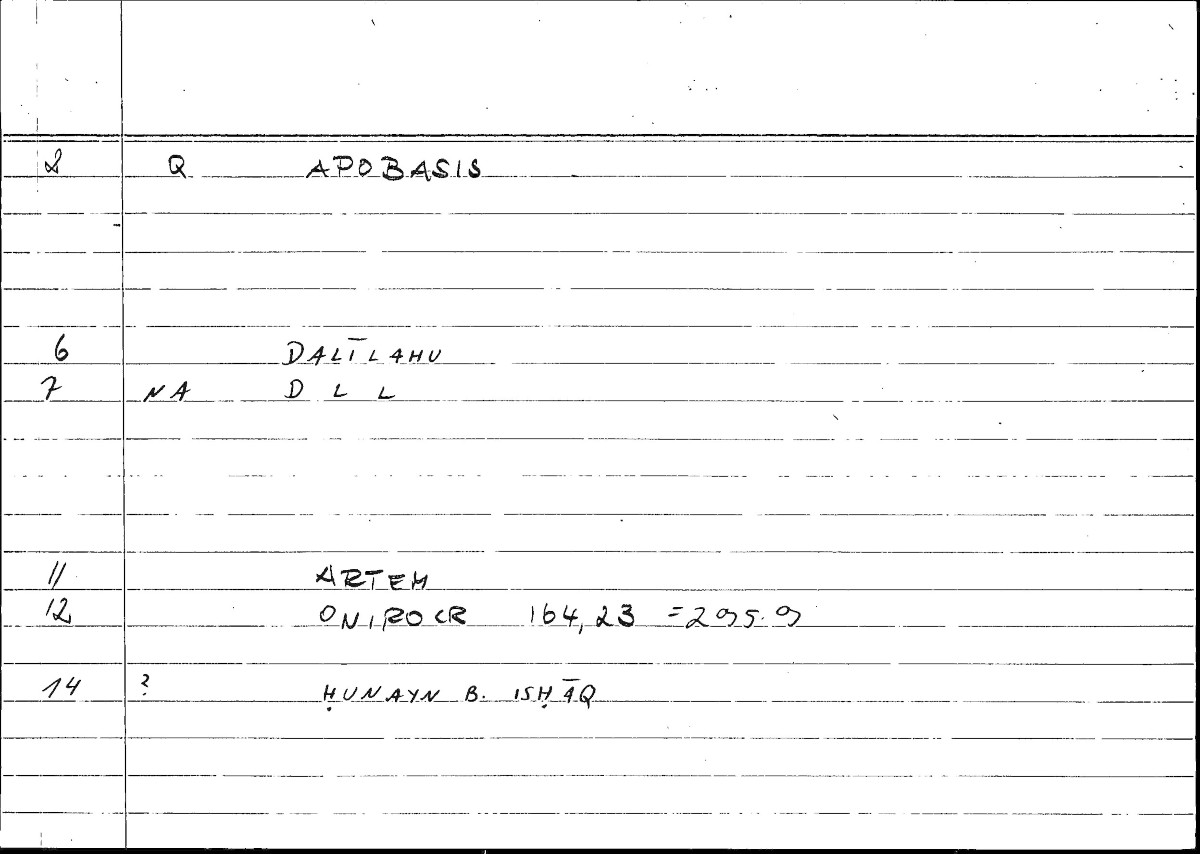 2 Q APOBASIS
6 DALĪLAHU
7 NA D L L
11 ARTEM
12 ONIROCR 164,23 =295.9
14 ? ḤUNAYN B. ISḤĀQ